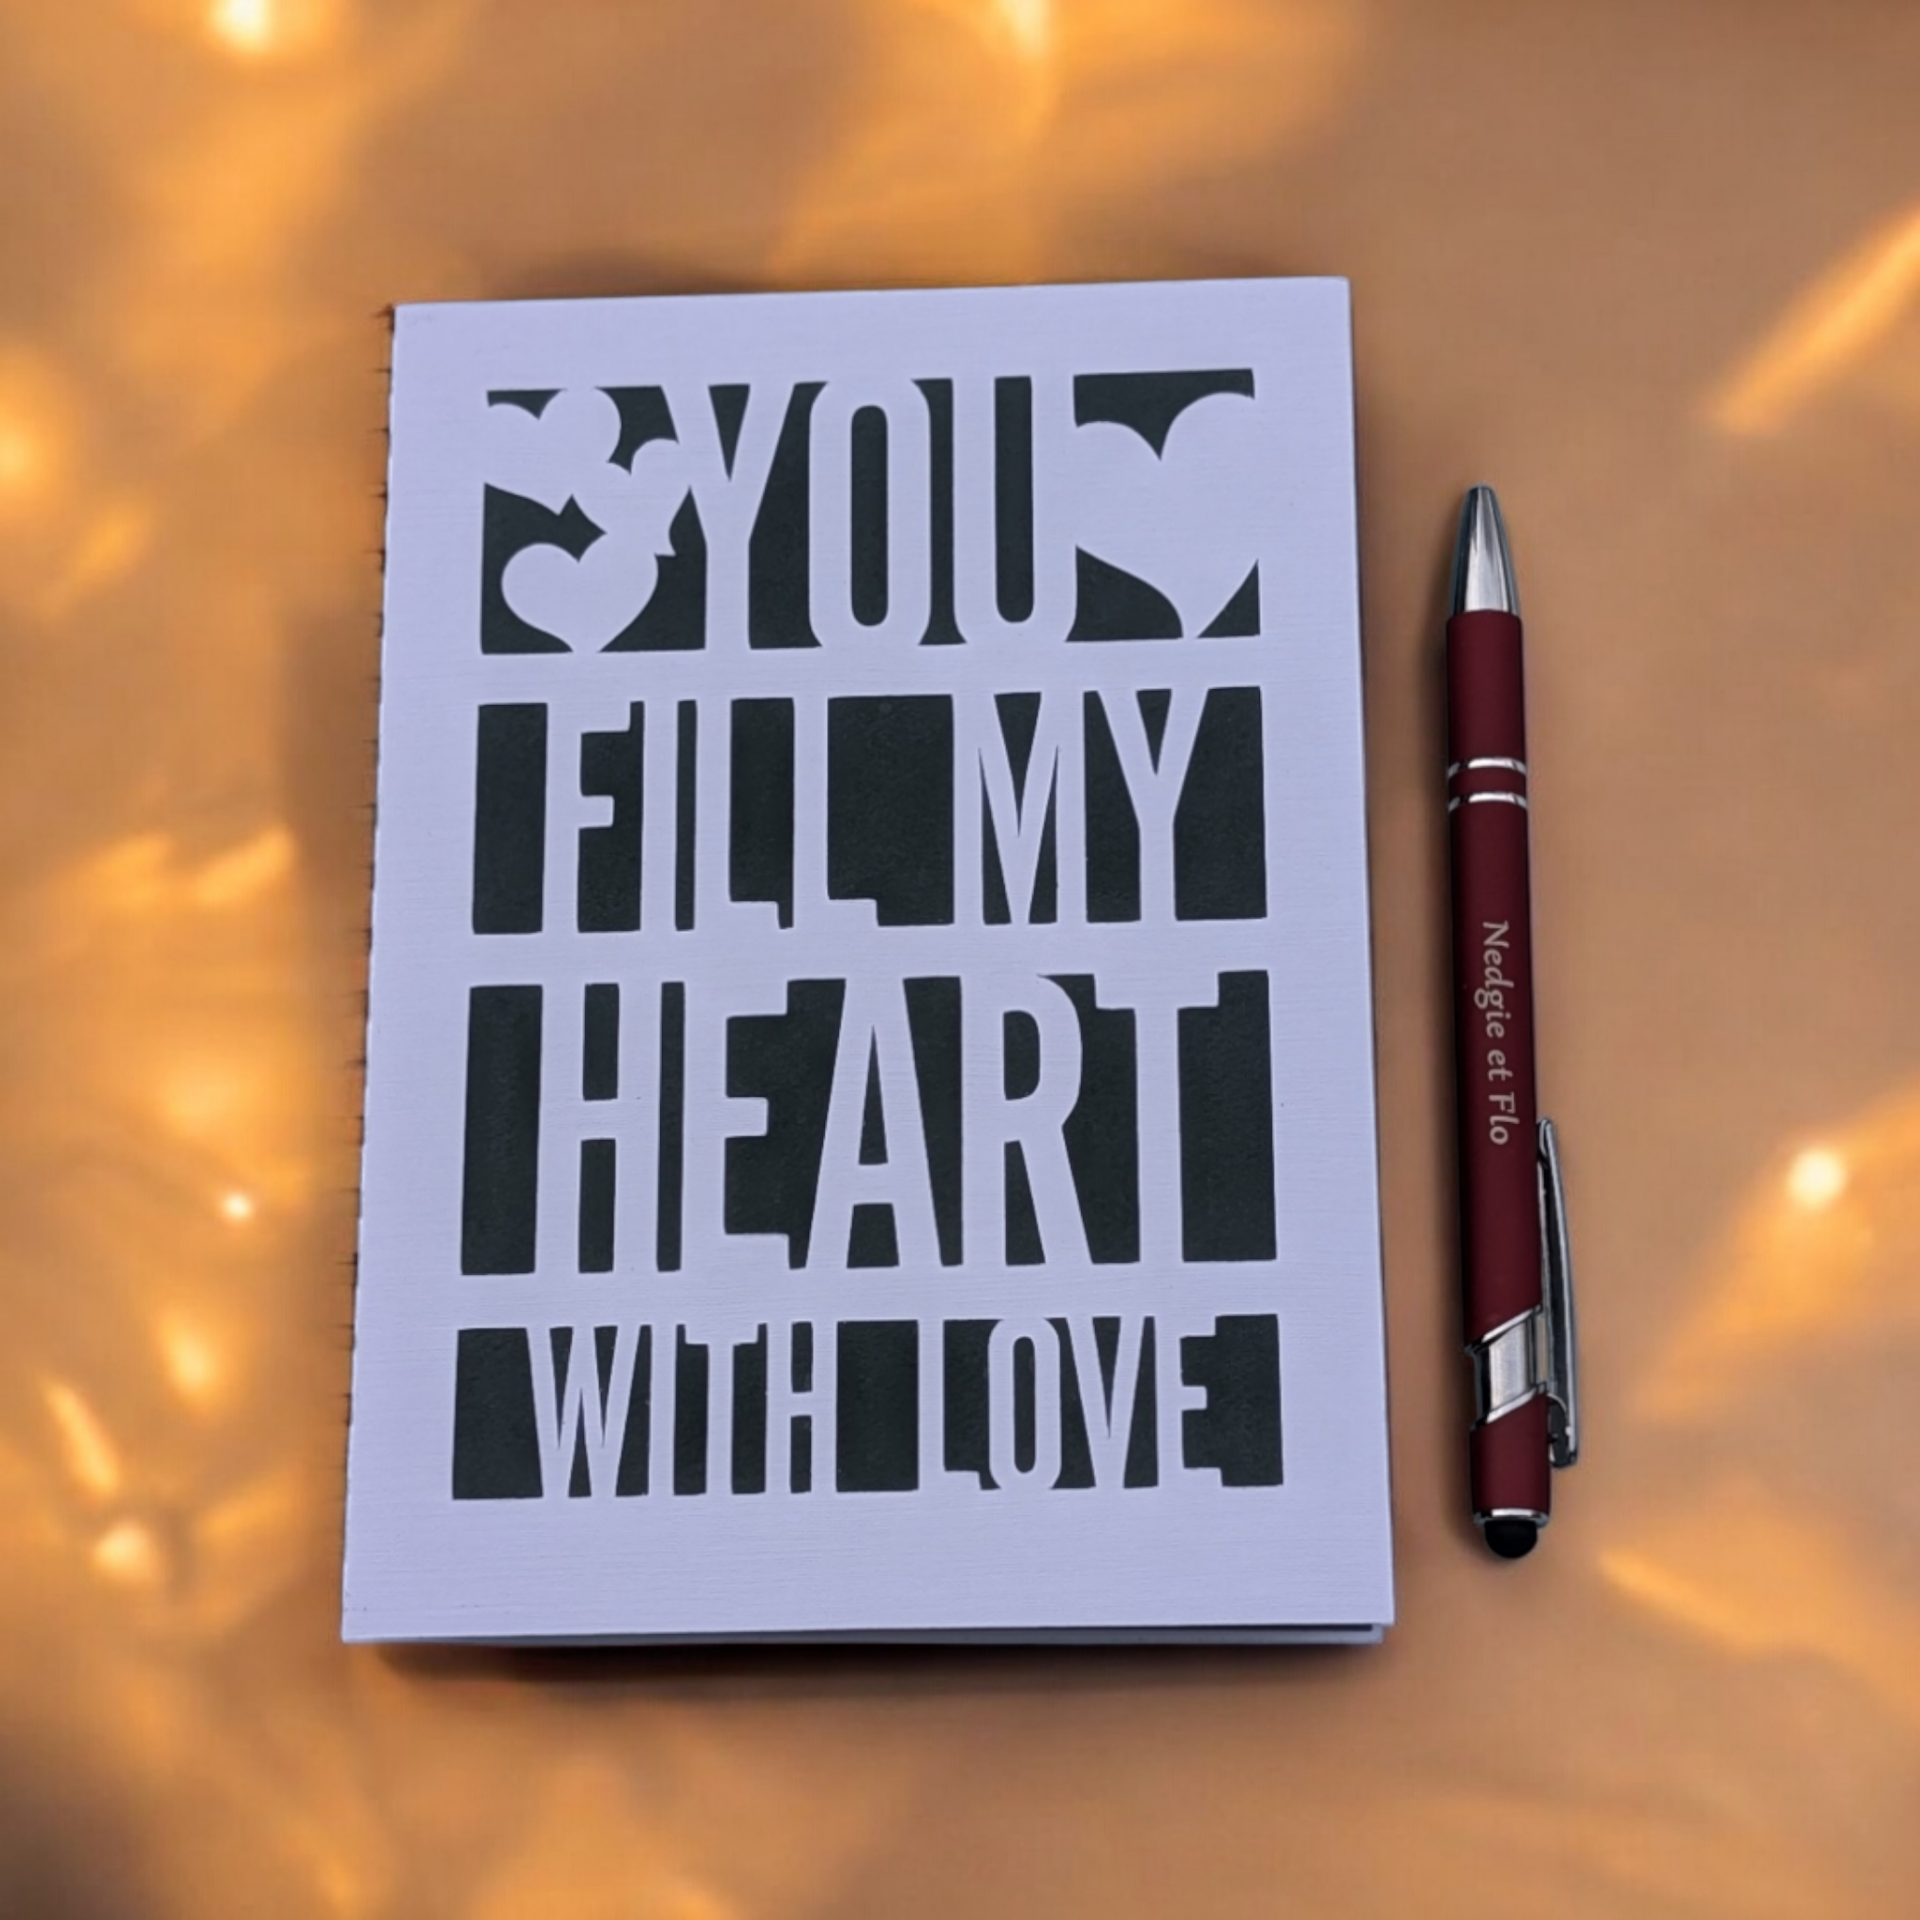 YOU
FILL MY
HEART
WITH LOVE
Nedgie et Flo